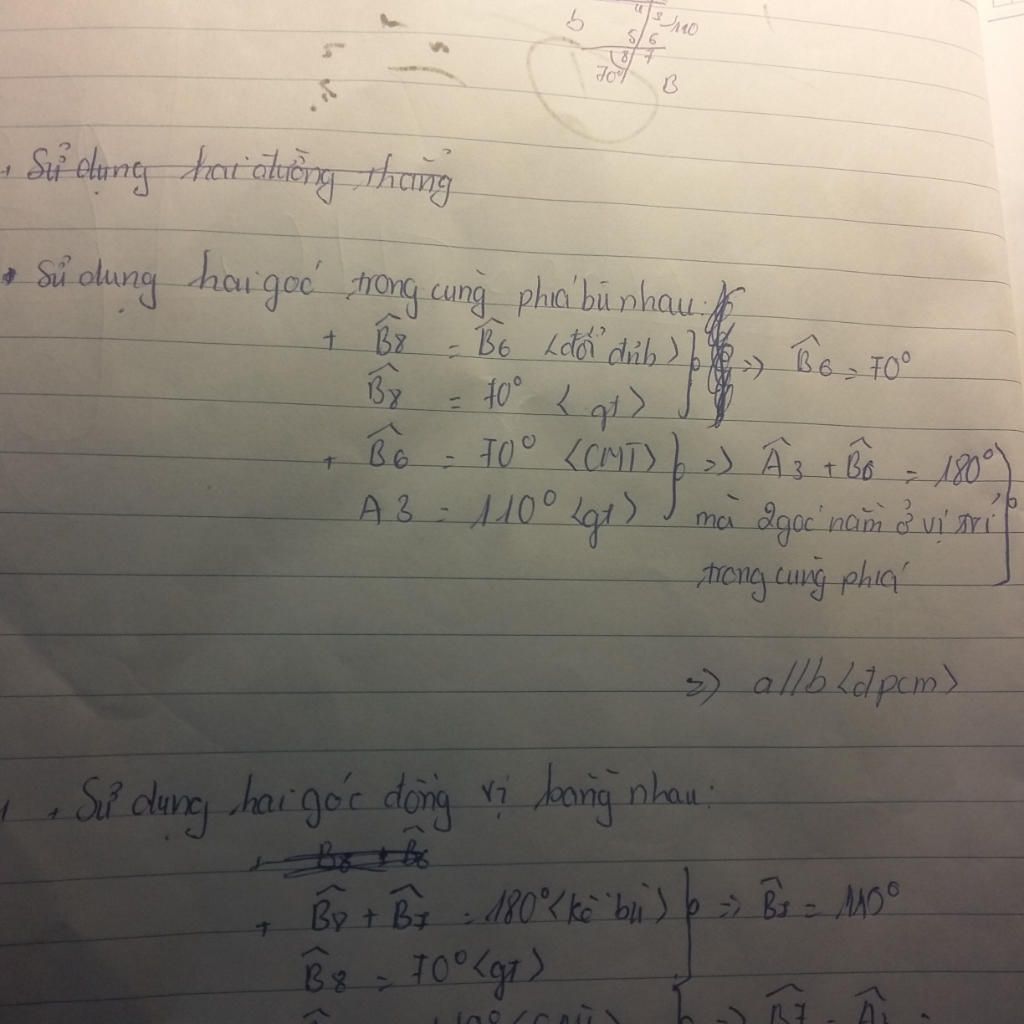 b 4 3 110
5 6
8 7
70° B
. Sử dụng hai đường thẳng
• Sử dung hai góc trong cùng phía bù nhau:
+ B̂8 = B̂6 <đối đỉnh> } => B̂6 = 70°
B̂8 = 70° <gt>
+ B̂6 = 70° <CMT> } => Â3 + B̂6 = 180°
A3 = 110° <gt> mà 2 góc nằm ở vị trí
trong cùng phía
=> a//b <đpcm>
+ Sử dụng hai góc đồng vị bằng nhau:
+ B̂8 + B̂7 = 180° <kề bù> } => B̂7 = 110°
B̂8 = 70° <gt>
=> B̂7 =